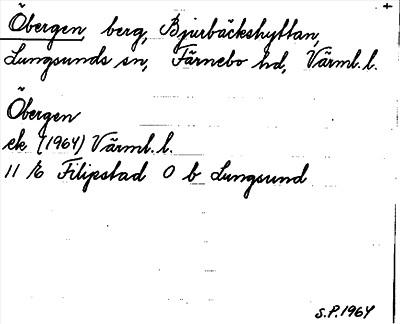 Öbergen berg, Bjurbäckshyttan,
Lungsunds sn, Färnebo hd, Värml. l.
Öbergen
ek (1964) Värml. l.
11 E Filipstad O b Lungsund
S.P. 1964